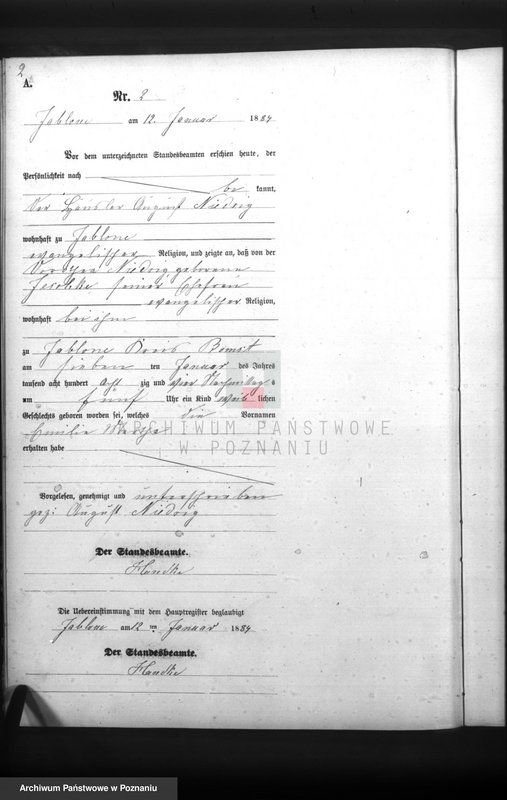 2
A.
Nr. 2
Jablone am 12. Januar 1884
Vor dem unterzeichneten Standesbeamten erschien heute, der
Persönlichkeit nach
be kannt,
der Häusler August Niedrig
wohnhaft zu Jablone
evangelischer Religion, und zeigte an, daß von der
Niedrig, geborene
Jeschke seiner Ehefrau
evangelischer Religion,
wohnhaft bei ihm
zu Jablone Kreis Bomst
am sieben ten Januar des Jahres
tausend acht hundert acht zig und vier Nachmittag s
um fünf Uhr ein Kind weib lichen
Geschlechts geboren worden sei, welches die Vornamen
Emilie
erhalten habe
ARCHIWUM PAŃSTWOWE
W POZNANIU
Vorgelesen, genehmigt und unterschrieben
gez: August Niedrig
Der Standesbeamte.
Handke
Die Uebereinstimmung mit dem Hauptregister beglaubigt
Jablone am 12 ten Januar 1884
Der Standesbeamte.
Handke
Archiwum Państwowe w Poznaniu